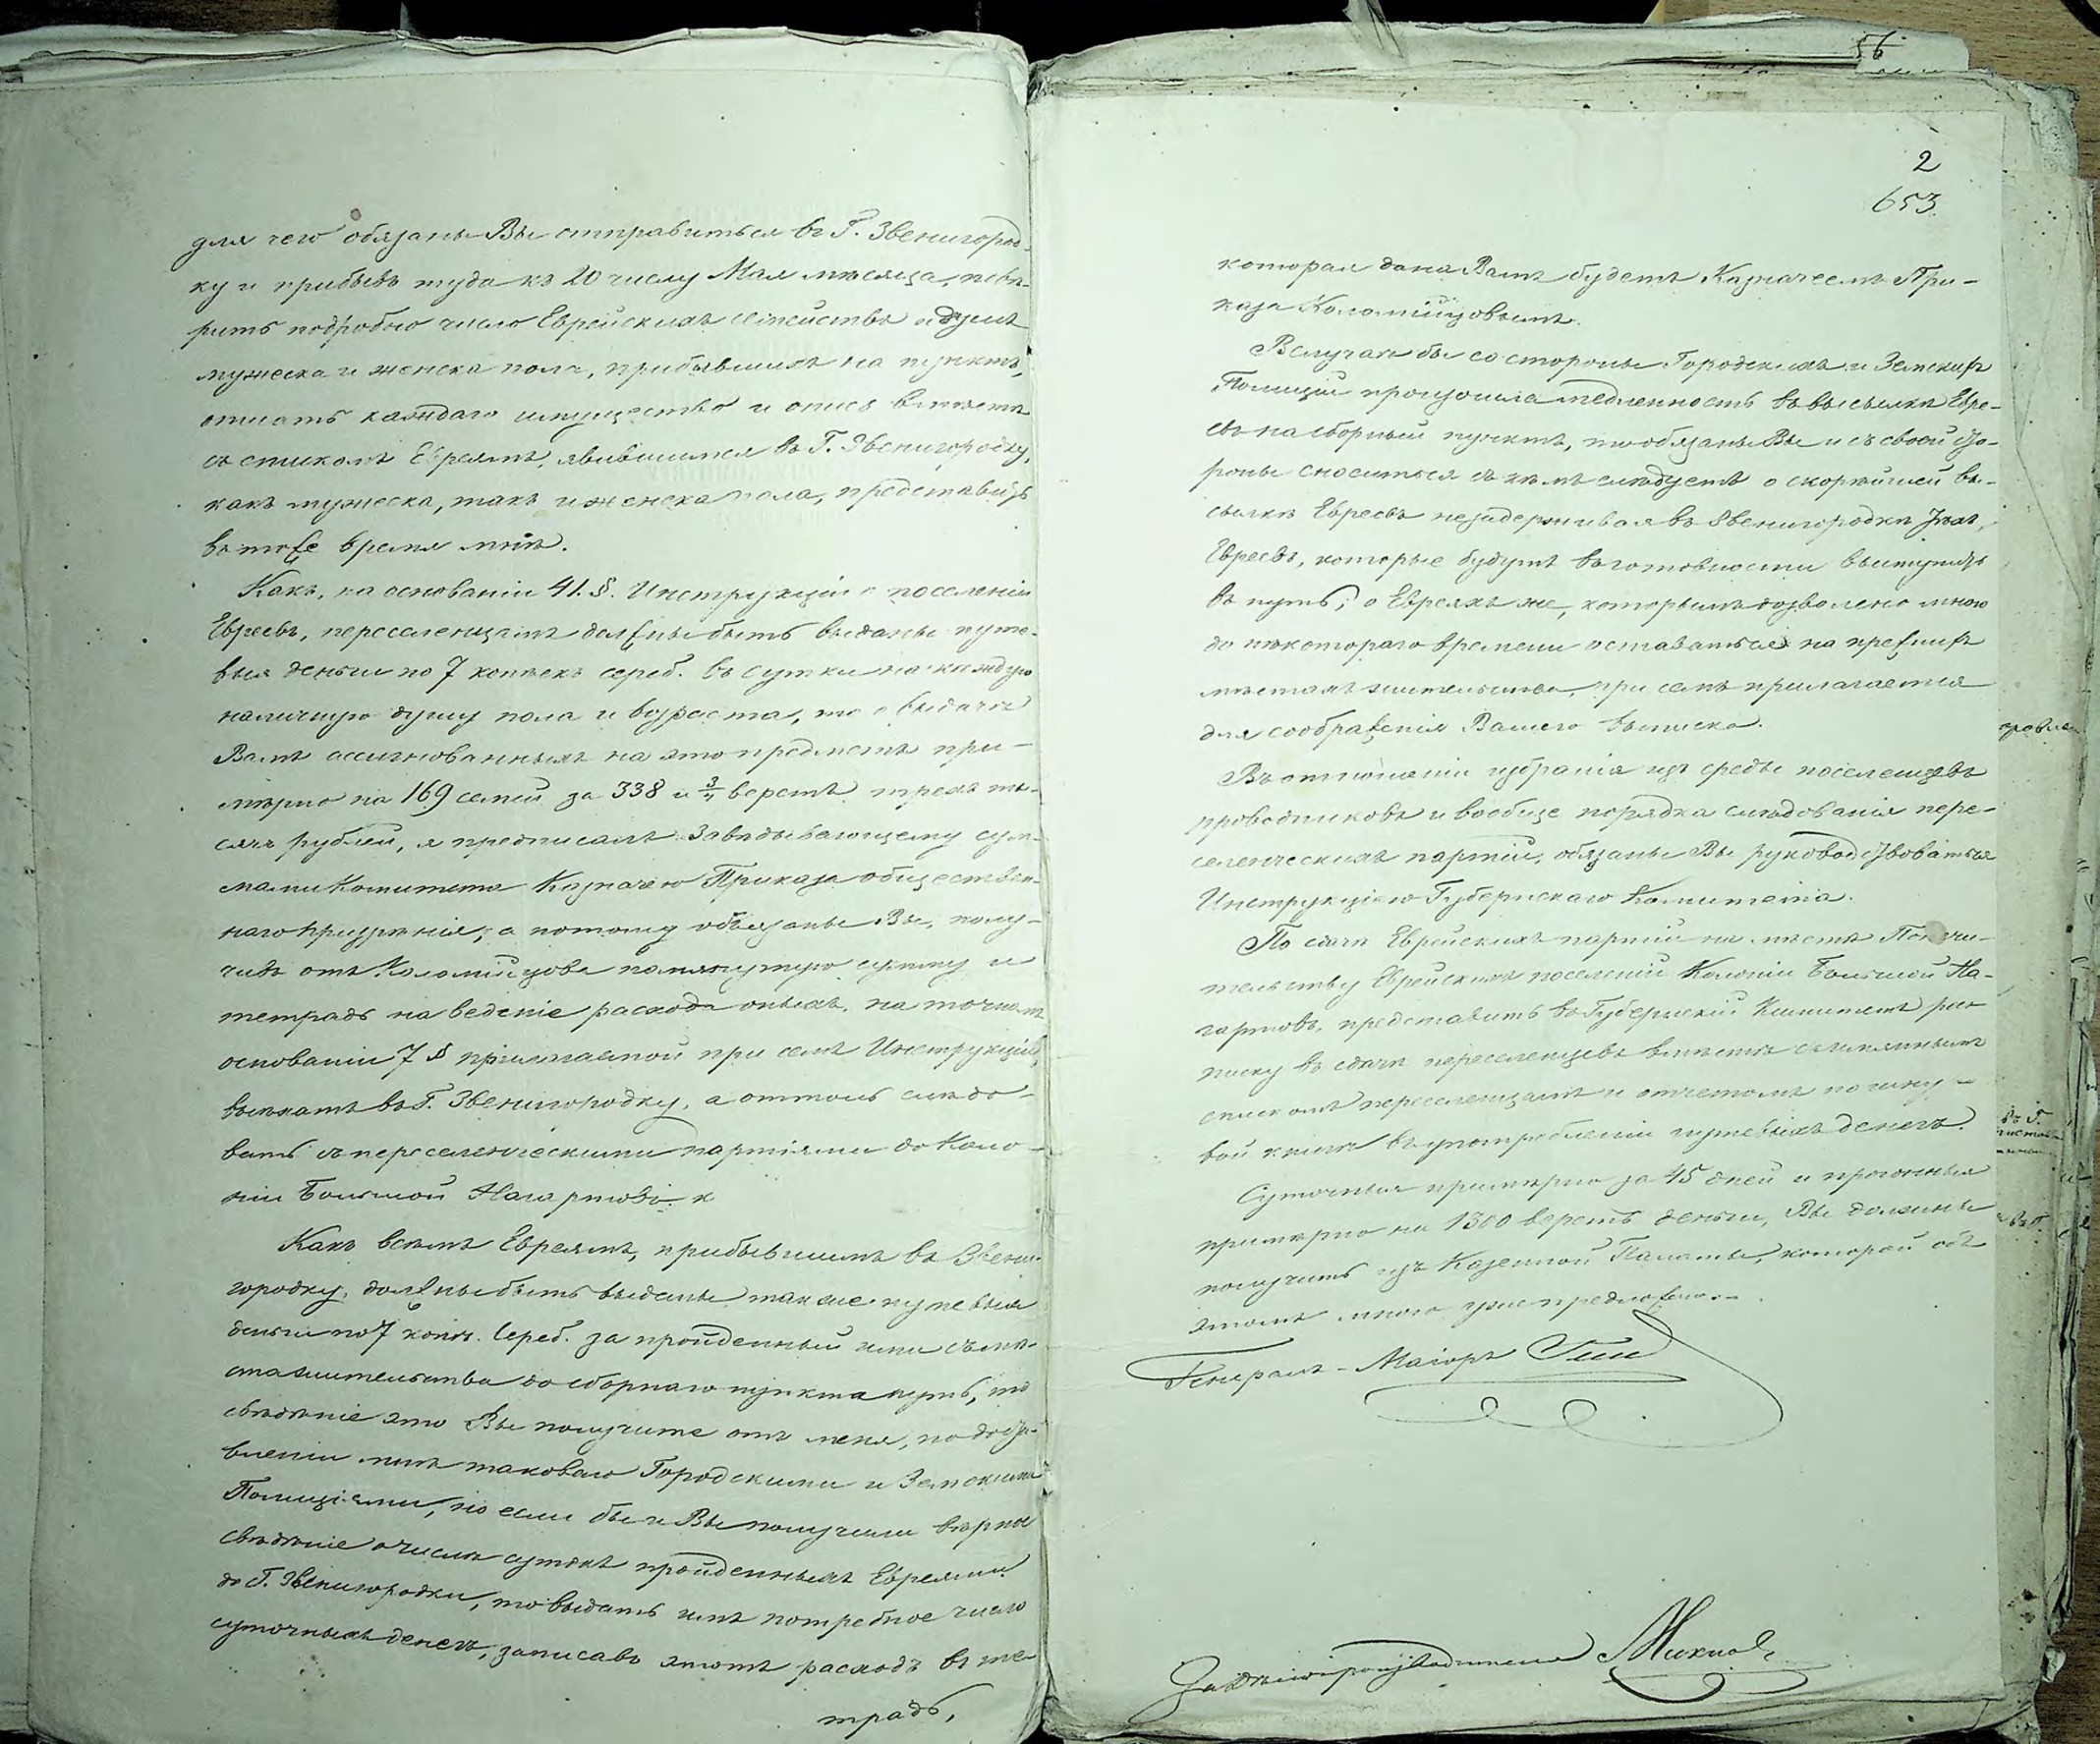 для чего обязаны Вы отправиться въ Г. Звенигород-
ку и прибывъ туда къ 20 числу Мая мѣсяца, повѣ-
рить подробно число Еврейскихъ семействъ и душъ
мужеска и женска пола, прибывшихъ на пунктъ,
описать каждаго имущество и опись вмѣстѣ
съ спискомъ Евреямъ, явившимся въ Г. Звенигородку,
какъ мужеска, такъ и женска пола, представить
въ тоже время мнѣ.
Какъ, на основаніи 41. §. Инструкціи о поселеніи
Евреевъ, переселенцамъ должны быть выданы путе-
выя деньги по 7 копѣекъ сереб. въ сутки на каждую
наличную душу пола и возраста, то о выдачѣ
Вамъ ассигнованныхъ на это предметъ при-
мѣрно на 169 семей за 338 и 3/4 верстъ трехъ ты-
сячъ рублей, я предписалъ Завѣдывающему сум-
мами Комитета Казначею Приказа обществен-
наго призрѣнія; а потому обязаны Вы, полу-
чивъ отъ Коломійцова помянутую сумму и
тетрадь на веденіе расхода оныхъ, на точномъ
основаніи 7 § прилагаемой при семъ Инструкціи,
выѣхать въ Г. Звенигородку, а оттоль слѣдо-
вать съ переселенческими партіями до Коло-
ніи Большой Нагартовъ.
Какъ всѣмъ Евреямъ, прибывшимъ въ Звени-
городку, должны быть выданы также путевыя
деньги по 7 копѣ. сереб. за пройденный ими съ мѣ-
ста жительства до сборнаго пункта путь, то
свѣдѣніе это Вы получите отъ меня, по доста-
вленіи мнѣ таковаго Городскими и Земскими
Полиціями, но если бы и Вы получили вѣрное
свѣдѣніе о числѣ сутокъ пройденныхъ Евреями
до Г. Звенигородки, то выдать имъ потребное число
суточныхъ денегъ, записавъ этотъ расходъ въ те-
традь,
56
2
653
которая дана Вамъ будетъ Казначеемъ При-
каза Коломійцовымъ.
Въ случаѣ бы со стороны Городскихъ и Земскихъ
Полицій произошла медленность въ высылкѣ Евре-
евъ на сборный пунктъ, то обязаны Вы и съ своей сто-
роны сноситься съ кѣмъ слѣдуетъ о скорѣйшей вы-
сылкѣ Евреевъ незадерживая въ Звенигородкѣ тѣхъ
Евреевъ, которые будутъ въ готовности выступить
въ путь; о Евреяхъ же, которымъ дозволено мною
до нѣкотораго времени оставаться на прежнихъ
мѣстахъ жительства, при семъ прилагается
для соображенія Вашего выписка.
Въ отношеніи избранія изъ среды поселенцевъ
проводниковъ и вообще порядка слѣдованія пере-
селенческихъ партій, обязаны Вы руководствоваться
Инструкціею Губернскаго Комитета.
По сдачѣ Еврейскихъ партій на мѣстѣ Попечи-
тельству Еврейскихъ поселеній Колоніи Большой На-
гартовъ, представить въ Губернскій Комитетъ рос-
писку въ сдачѣ переселенцевъ вмѣстѣ съ имяннымъ
спискомъ переселенцамъ и отчетомъ по шну-
вой книгѣ въ употребленіи путевыхъ денегъ.
Суточныя примѣрно за 45 дней и прогонныя
примѣрно на 1300 верстъ деньги, Вы должны
получить изъ Казенной Палаты, которой объ
этомъ мною уже предложено.
Генералъ-Маіоръ
За Дѣлопроизводителя